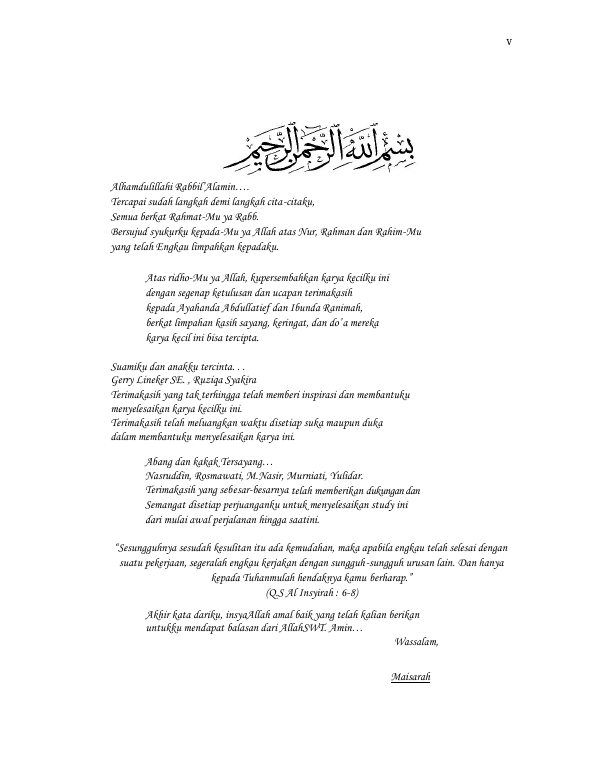 v
بسم الله الرحمن الرحيم
Alhamdulillahi Rabbil'Alamin….
Tercapai sudah langkah demi langkah cita-citaku,
Semua berkat Rahmat-Mu ya Rabb.
Bersujud syukurku kepada-Mu ya Allah atas Nur, Rahman dan Rahim-Mu
yang telah Engkau limpahkan kepadaku.
Atas ridho-Mu ya Allah, kupersembahkan karya kecilku ini
dengan segenap ketulusan dan ucapan terimakasih
kepada Ayahanda Abdullatief dan Ibunda Ranimah,
berkat limpahan kasih sayang, keringat, dan do'a mereka
karya kecil ini bisa tercipta.
Suamiku dan anakku tercinta. . .
Gerry Lineker SE. , Ruziqa Syakira
Terimakasih yang tak terhingga telah memberi inspirasi dan membantuku
menyelesaikan karya kecilku ini.
Terimakasih telah meluangkan waktu disetiap suka maupun duka
dalam membantuku menyelesaikan karya ini.
Abang dan kakak Tersayang…
Nasruddin, Rosmawati, M.Nasir, Murniati, Yulidar.
Terimakasih yang sebesar-besarnya telah memberikan dukungan dan
Semangat disetiap perjuanganku untuk menyelesaikan study ini
dari mulai awal perjalanan hingga saatini.
“Sesungguhnya sesudah kesulitan itu ada kemudahan, maka apabila engkau telah selesai dengan
suatu pekerjaan, segeralah engkau kerjakan dengan sungguh-sungguh urusan lain. Dan hanya
kepada Tuhanmulah hendaknya kamu berharap.”
(Q.S Al Insyirah : 6-8)
Akhir kata dariku, insyaAllah amal baik yang telah kalian berikan
untukku mendapat balasan dari AllahSWT. Amin…
Wassalam,
Maisarah